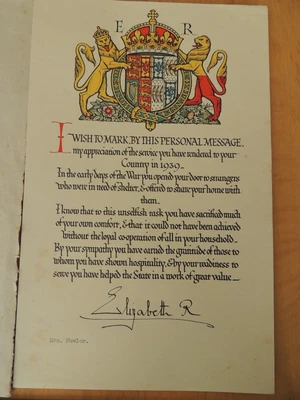 E R
I WISH TO MARK, BY THIS PERSONAL MESSAGE,
my appreciation of the service you have rendered to your
Country in 1939.
In the early days of the War you opened your door to strangers
who were in need of shelter, & offered to share your home with
them.
I know that to this unselfish task you have sacrificed much
of your own comfort, & that it could not have been achieved
without the loyal co-operation of all in your household.
By your sympathy you have earned the gratitude of those to
whom you have shown hospitality, & by your readiness to
serve you have helped the State in a work of great value.
Elizabeth R
Mrs. Fowler.